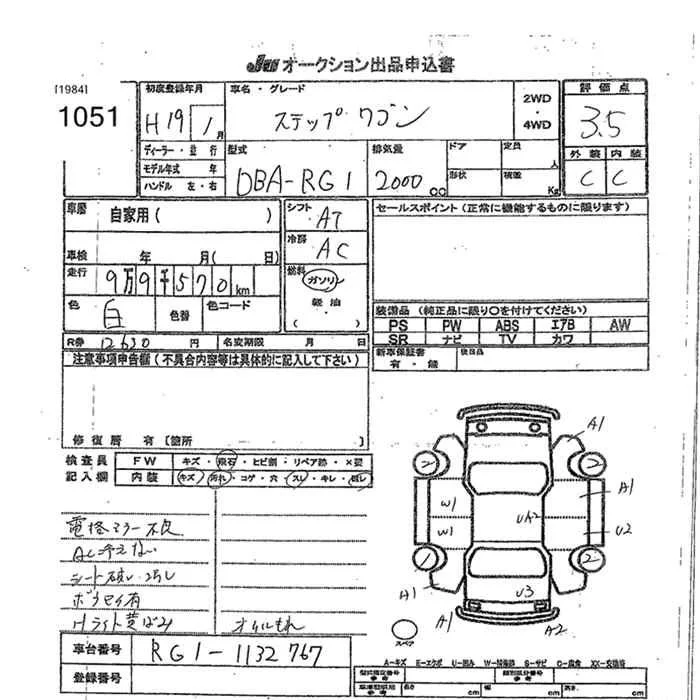 JU オークション出品申込書
[1984]
1051
初度登録年月
H19 1月
車名・グレード
ステップワゴン
2WD
・
4WD
評価点
3.5
外装 内装
C C
ディーラー・並行
モデル年式 年
ハンドル 左・右
型式
DBA-RG1
排気量
2000 CC
ドア
形状
定員 人
積載 Kg
車歴
自家用( )
車検 年 月( 日)
走行
9万9千570km
色
白
色替
色コード
シフト
AT
冷房
AC
燃料
ガソリン
軽油
( )
セールスポイント(正常に機能するものに限ります)
装備品(純正品に限り○を付けてください)
PS PW ABS エアB AW
SR ナビ TV カワ
新車保証書
有・無
後日品
R券 12630 円
名変期限 月 日
注意事項申告欄(不具合内容等は具体的に記入して下さい)
修復歴 有[箇所 ]
検査員
記入欄
FW キズ・飛石・ヒビ割・リペア跡・×要
内装 キズ・汚れ・コゲ・穴・スレ・キレ・
電格ミラー不良
AC冷えない
シート破レ
ボデセイ有
Hライト黄ばみ
オイルもれ
A1
W1
W1
UA2
A1
U2
U3
A1
A1
A2
2
2
2
スペア
車台番号
RG1-1132767
登録番号
A-キズ E-エクボ U-凹み W-補修跡 S-サビ C-腐食 XX-交換済
型式指定番号
参考
類別区分番号
参考
長さ cm
幅 cm
高さ cm